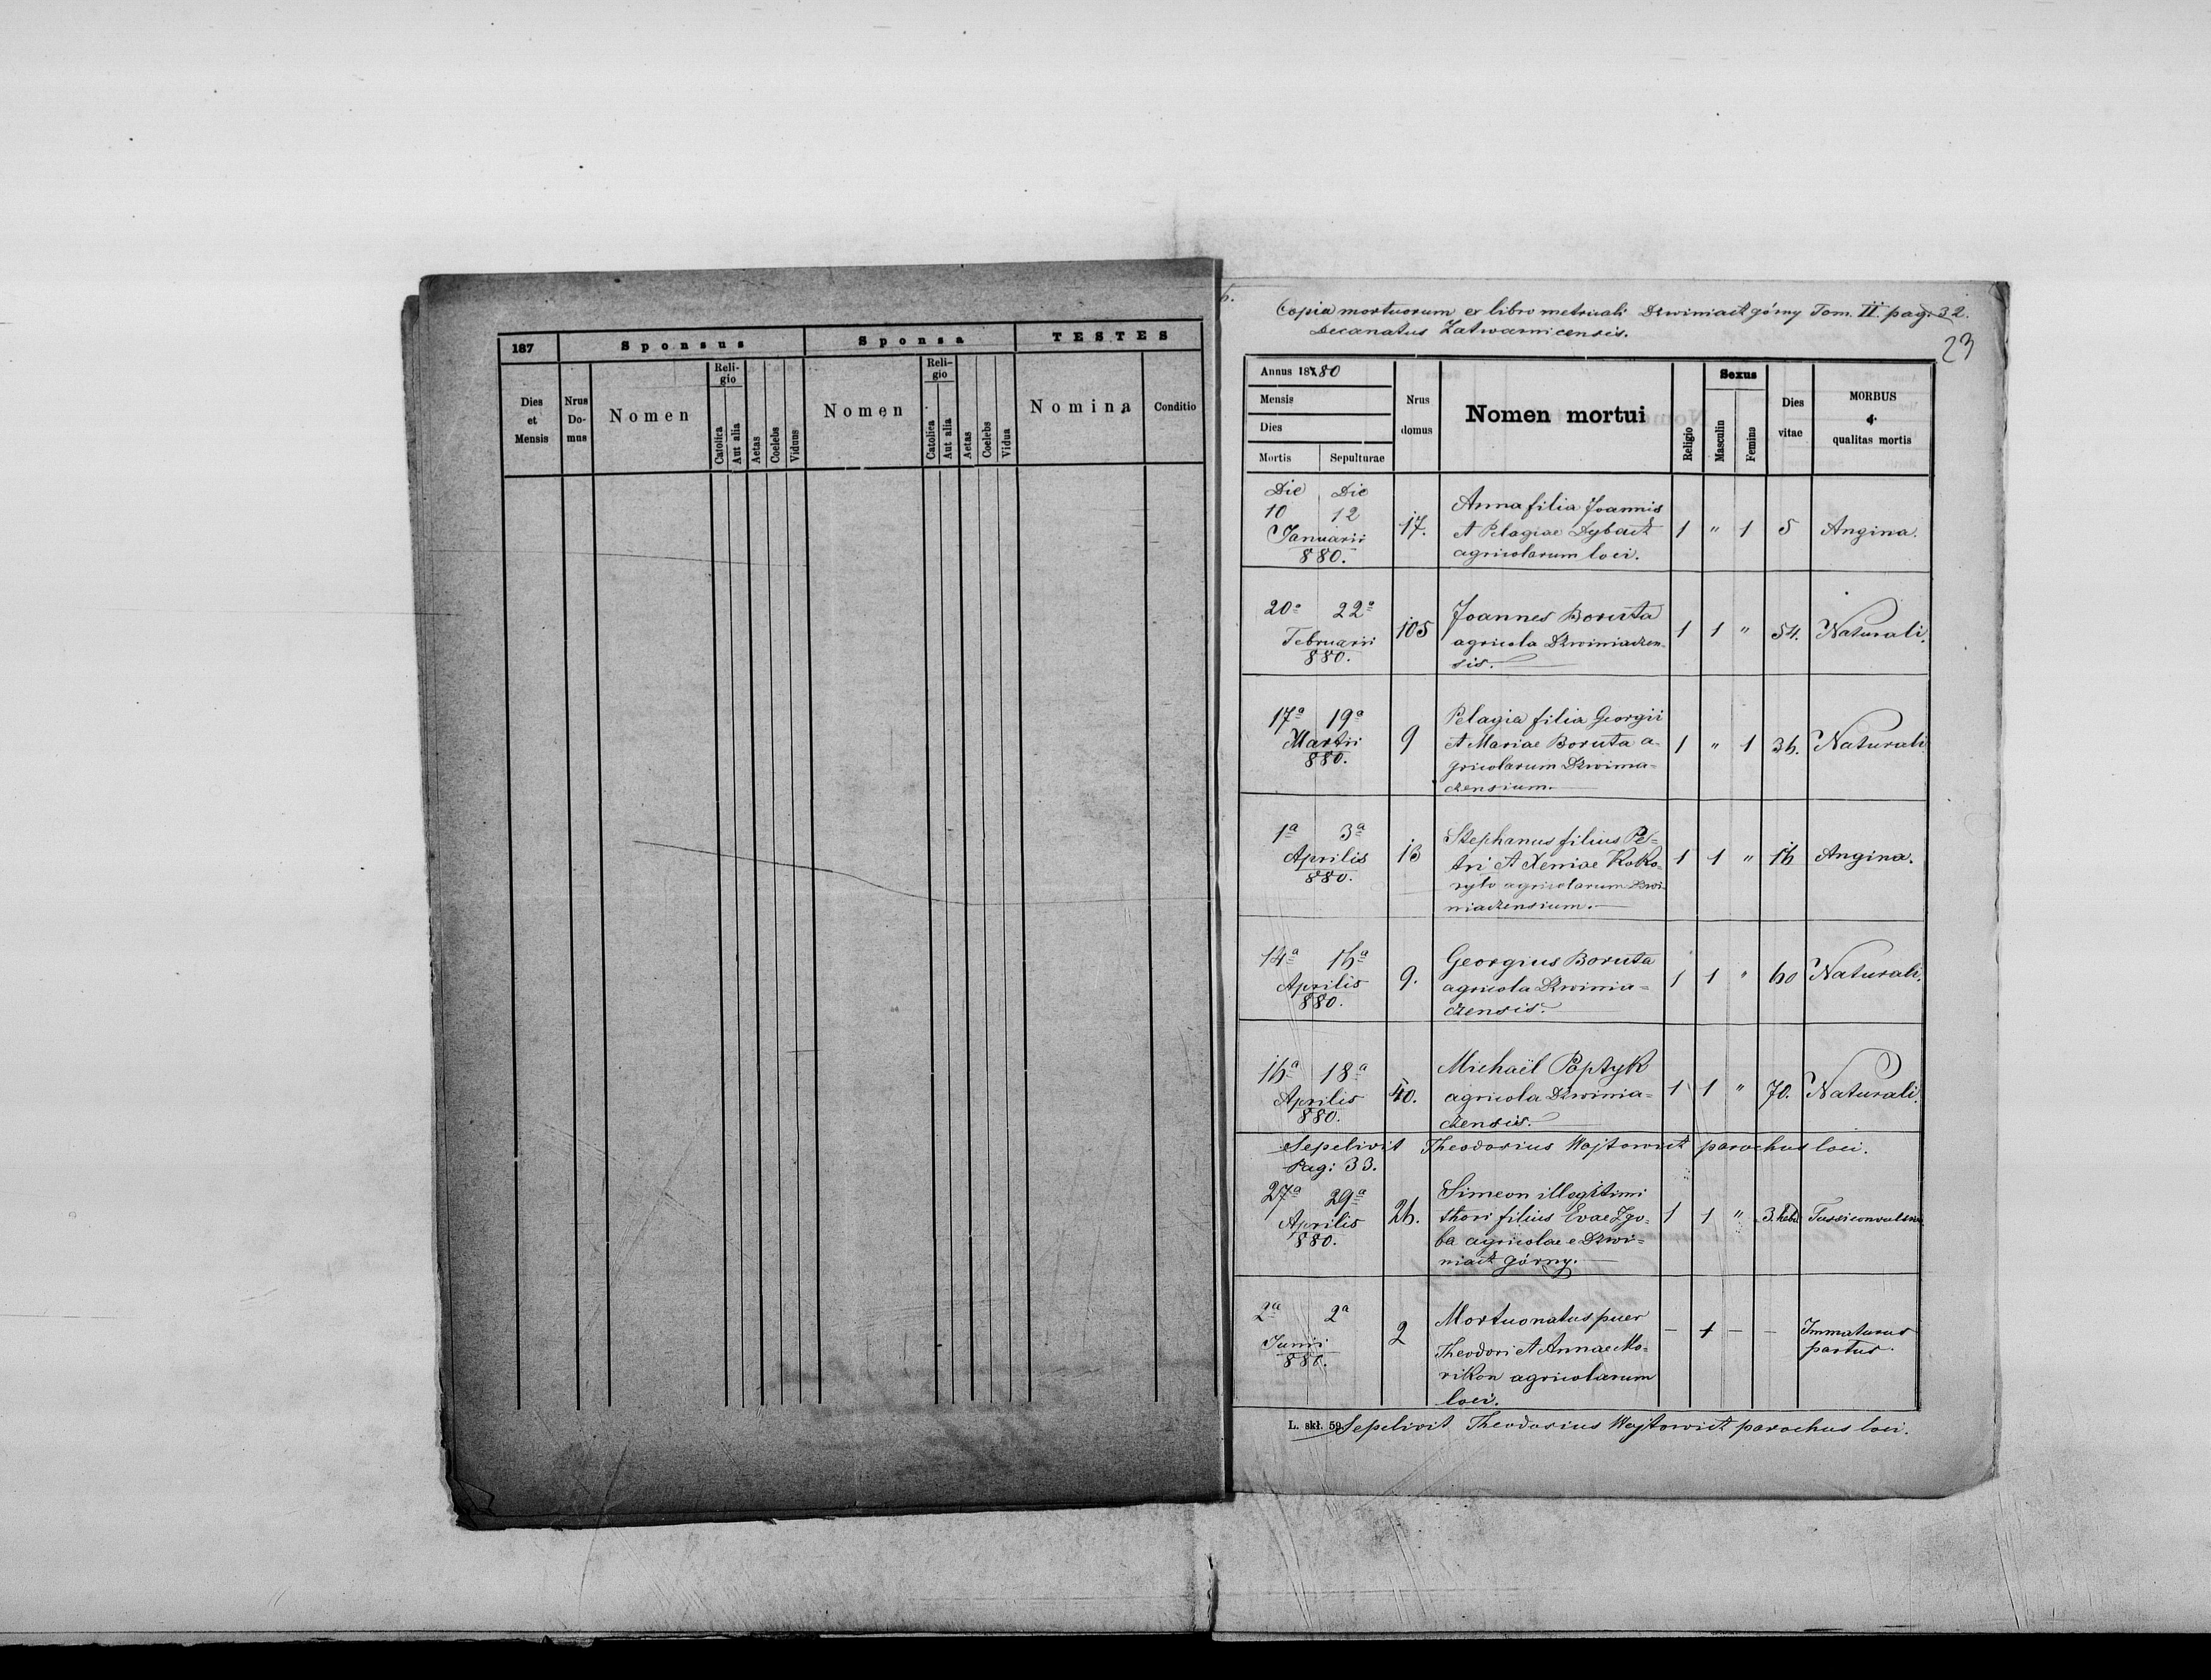 187
Sponsus
Sponsa
TESTES
Dies
et
Mensis
Nrus
Do-
mus
Nomen
Reli-
gio
Catolica
Aut alia
Aetas
Coelebs
Viduus
Nomen
Reli-
gio
Catolica
Aut alia
Aetas
Coelebs
Vidua
Nomina
Conditio
Copia mortuorum ex libro metricali Dzwiniacz górny Tom. II. pag. 32.
Decanatus Zatwarnicensis.
23
Annus 18780
Mensis
Dies
Mortis
Sepulturae
Nrus
domus
Nomen mortui
Religio
Sexus
Masculin
Femina
Dies
vitae
MORBUS
&
qualitas mortis
Die Die
10 12
Januarii
880.
17.
Anna filia Joannis
et Pelagiae Dybacz
agricolarum loci.
1 " 1 5 Angina.
20a 22a
Februarii
880.
105
Joannes Boruta
agricola Dzwiniaczen-
sis.
1 1 " 54. Naturali.
17a 19a
Martii
880.
9
Pelagia filia Georgii
et Mariae Boruta a-
gricolarum Dzwinia-
czensium.
1 " 1 36. Naturali
1a 3a
Aprilis
880.
Stephanus filius Pe-
tri et Xeniae Koko-
ryło agricolarum Dzwi-
niaczensium.
1 1 " 16 Angina.
14a 16a
Aprilis
880.
9.
Georgius Boruta
agricola Dzwinia-
czensis.
1 1 " 60 Naturali.
16a 18a
Aprilis
880.
40.
Michaël Poptyk
agricola Dzwinia-
czensis.
1 1 " 70. Naturali.
Sepelivit Theodosius Wojtowicz parochus loci.
Pag: 33.
27a 29a
Aprilis
880.
26.
Simeon illegitimi
thori filius Evae Zgo-
ba agricolae e Dzwi-
niacz górny.
1 1 " 3. hebd. Tussi convulsiva
2a 2a
Junii
880.
2
Mortuonatus puer
Theodori et Annae Mo-
rikon agricolarum
loci.
- 1 - - Immaturus
partus.
L. skł. 59
Sepelivit Theodosius Wojtowicz parochus loci.